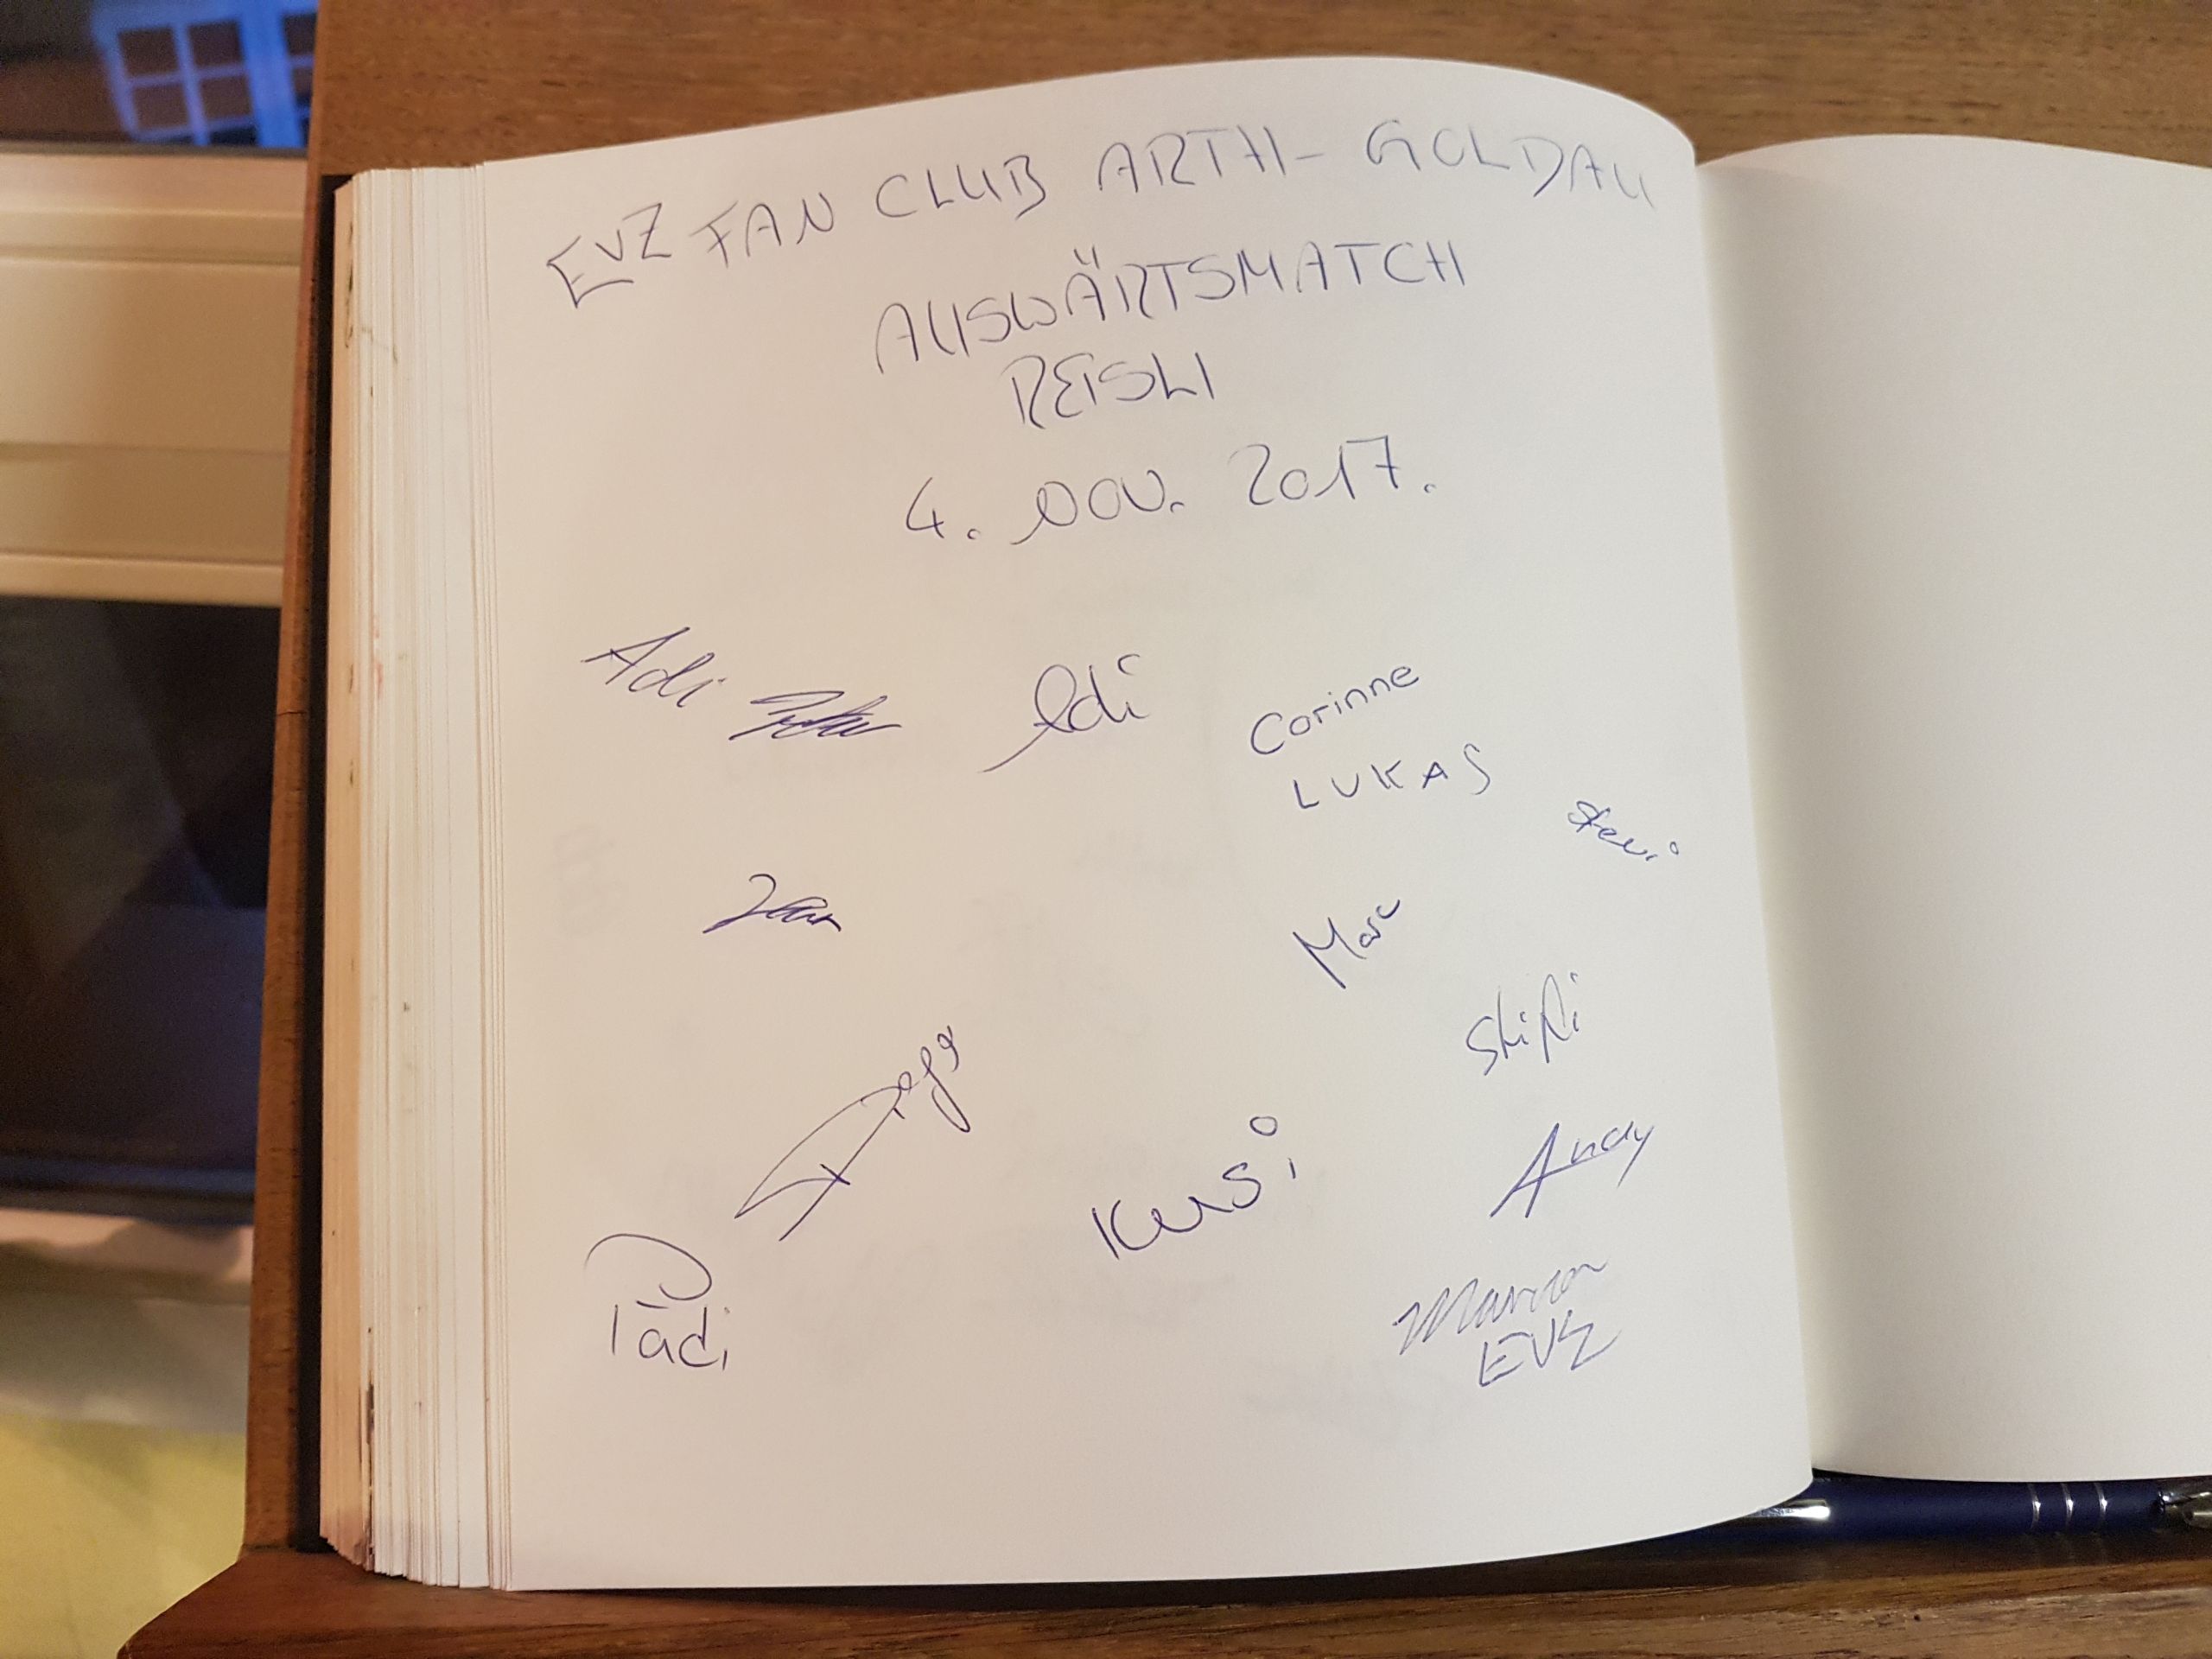 EVZ FAN CLUB ARTH-GOLDAU
AUSWÄRTSMATCH
REISLI
4. NOV. 2017.
Adi
Edi
Corinne
LUKAS
Jan
Marc
Kusi
Andy
Pädi
EVZ